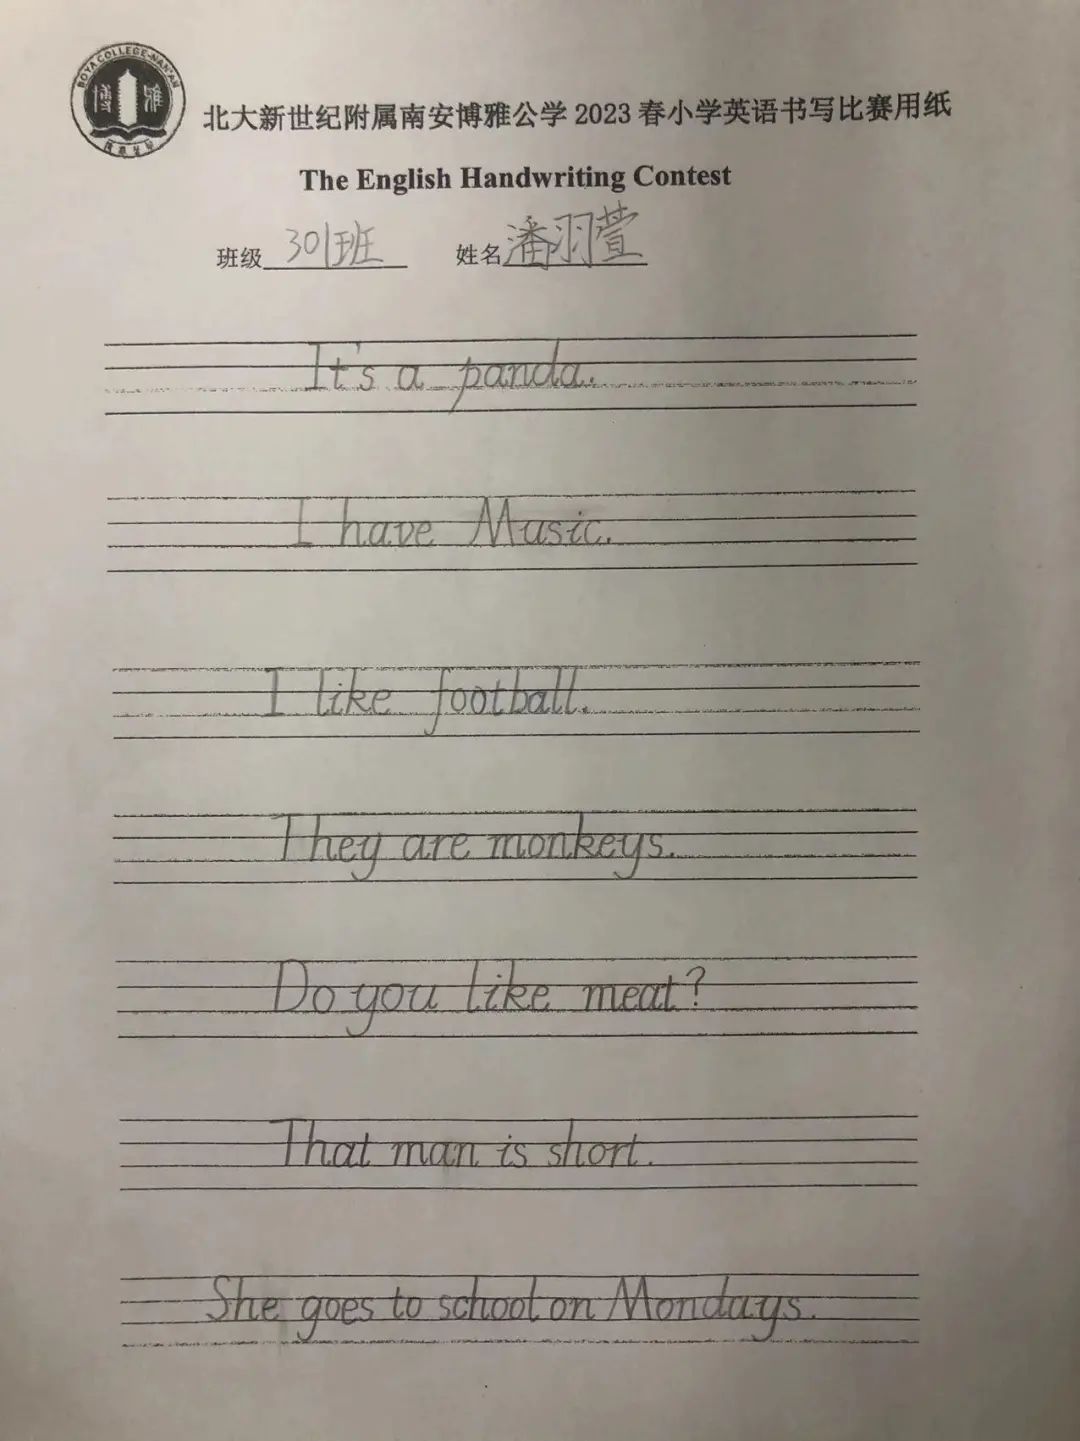 BOYA COLLEGE-NAN'AN
博雅
北大新世纪附属南安博雅公学 2023 春小学英语书写比赛用纸
The English Handwriting Contest
班级 301班 姓名 潘羽萱
It's a panda.
I have Music.
I like football.
They are monkeys.
Do you like meat?
That man is short.
She goes to school on Mondays.